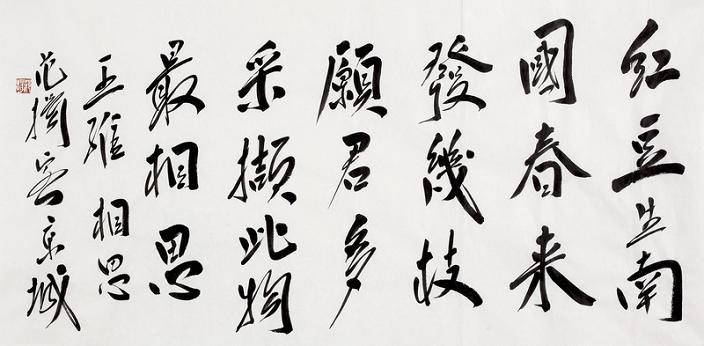 红豆生南
國春来
發幾枝
願君多
采擷此物
最相思
王维 相思
范擷客京城